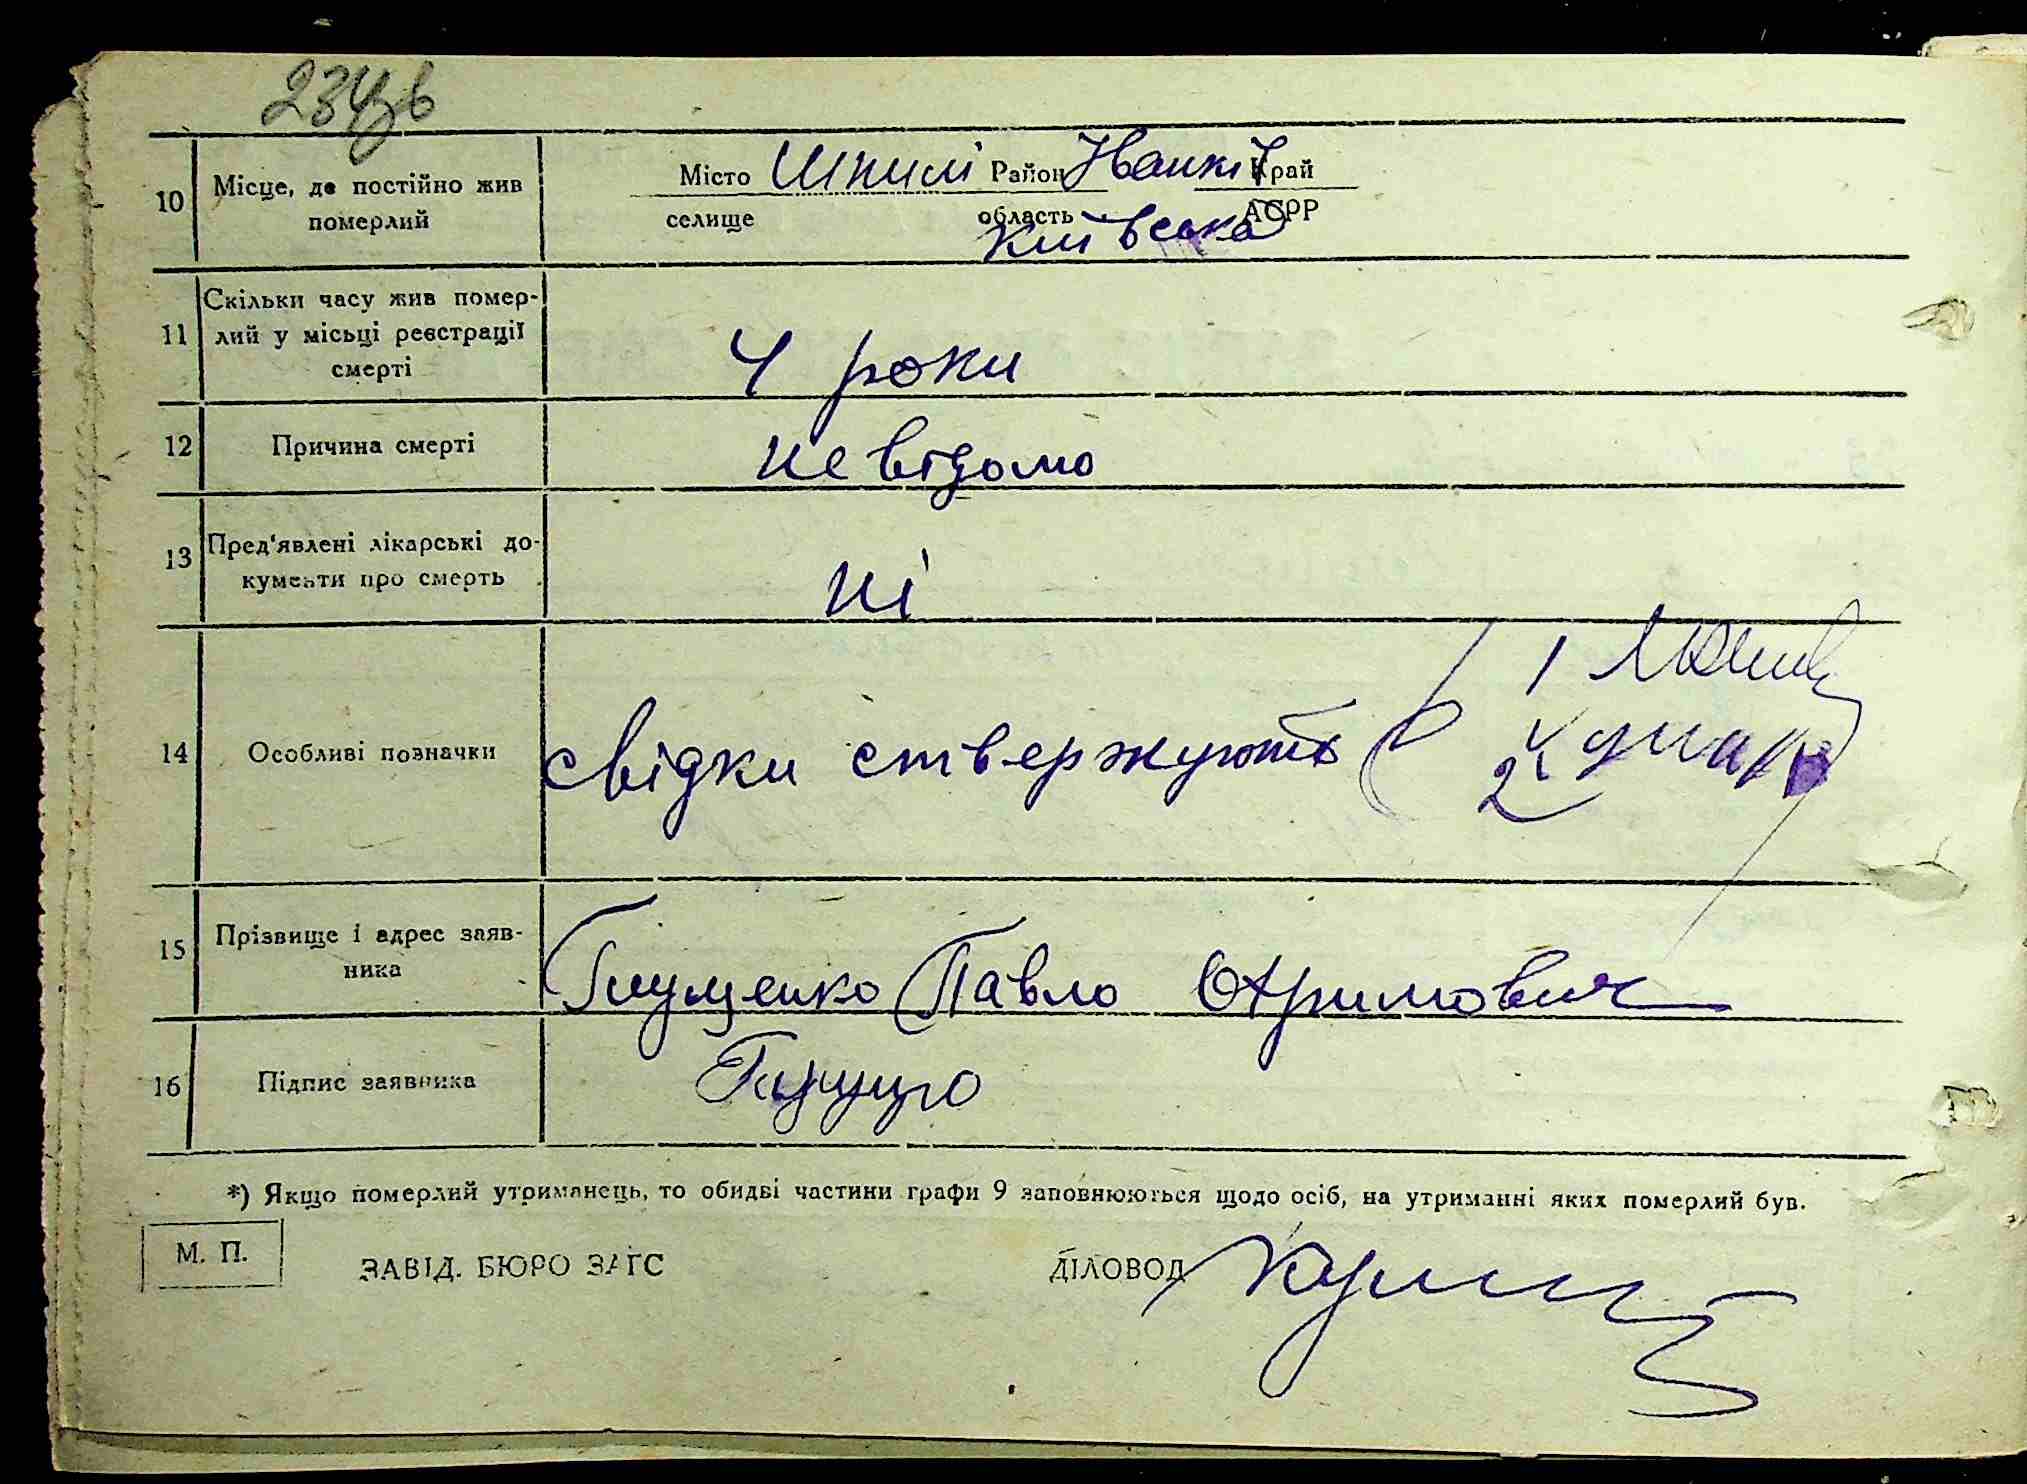 234зв
10 Місце, де постійно жив
померлий
Місто Шпилі Район Іванків Край
селище область АСРР
Київська
11 Скільки часу жив помер-
лий у місьці реєстрації
смерті
4 роки
12 Причина смерті
невідомо
13 Пред'явлені лікарські до-
кументи про смерть
ні
14 Особливі позначки
свідки ствержують
1
2
15 Прізвище і адрес заяв-
ника
Глущенко Павло Охримович
16 Підпис заявника
*) Якщо померлий утриманець, то обидві частини графи 9 заповнюються щодо осіб, на утриманні яких померлий був.
М. П.
ЗАВІД. БЮРО ЗАГС ДІЛОВОД